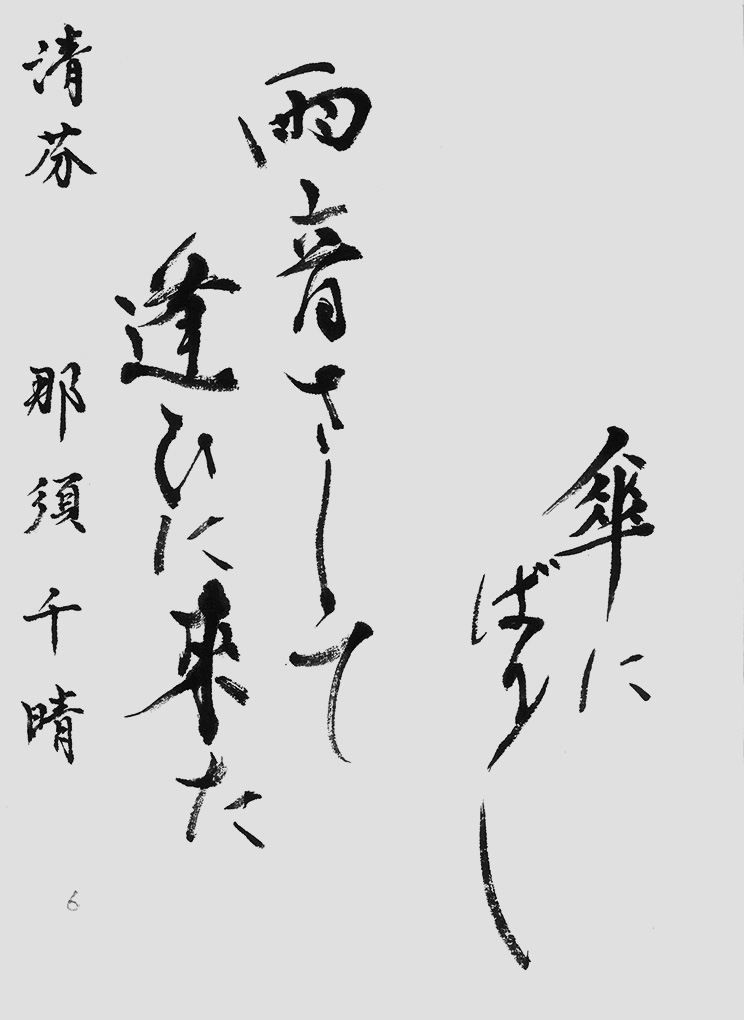 傘に
ばり〱
雨音さして
逢ひに来た
清芬 那須千晴
6